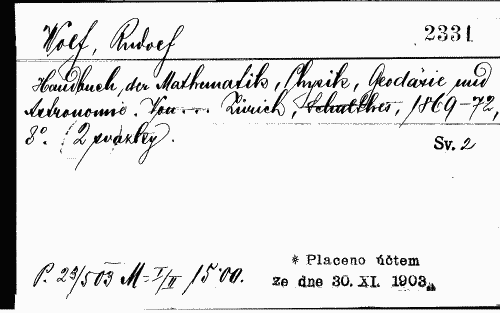 Wolf, Rudolf 2331
Handbuch der Mathematik, Physik, Geodäsie und
Astronomie. Von ... Zürich, Schulthes, 1869-72,
8°. (2 svazky).
Sv. 2
* Placeno účtem
P. 23/503 M=I/II 15·00.
ze dne 30. XI. 1903.